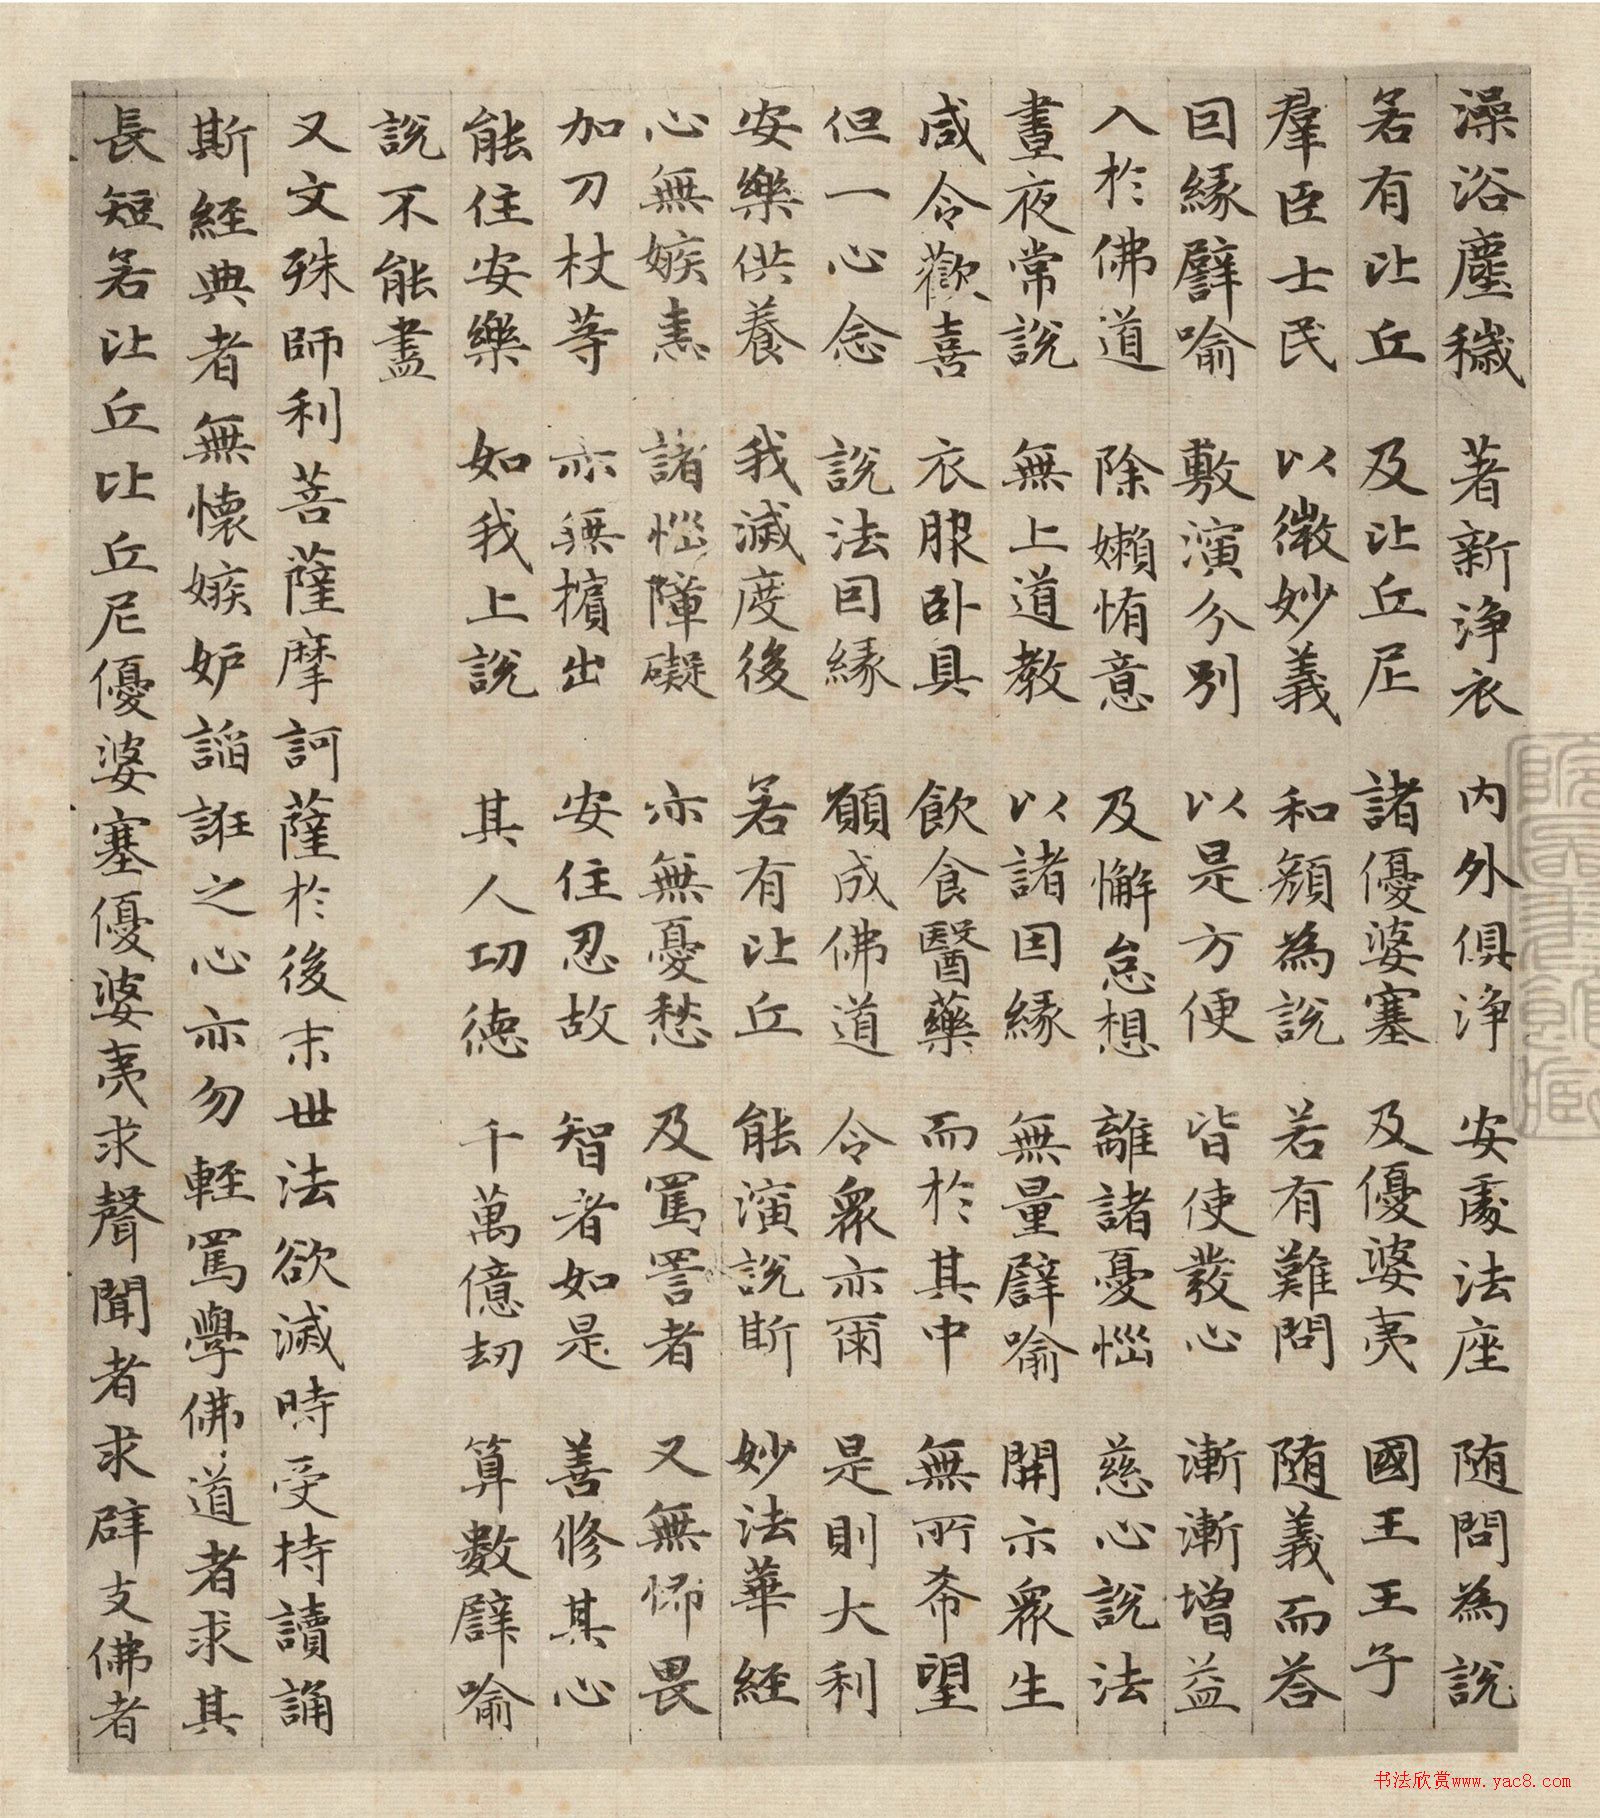 澡浴塵穢　著新淨衣　內外俱淨　安處法座　随問為說
若有比丘　及比丘尼　諸優婆塞　及優婆夷　國王王子
羣臣士民　以微妙義　和顏為說　若有難問　随義而荅
因緣譬喻　敷演分別　以是方便　皆使發心　漸漸增益
入於佛道　除嬾惰意　及懈怠想　離諸憂惱　慈心說法
晝夜常說　無上道教　以諸因緣　無量譬喻　開示眾生
咸令歡喜　衣服卧具　飲食醫藥　而於其中　無所希望
但一心念　說法因緣　願成佛道　令眾亦爾　是則大利
安樂供養　我滅度後　若有比丘　能演說斯　妙法華經
心無嫉恚　諸惱障礙　亦無憂愁　及罵詈者　又無怖畏
加刀杖等　亦無擯出　安住忍故　智者如是　善修其心
能住安樂　如我上說　其人功德　千萬億劫　算數譬喻
說不能盡
又文殊師利菩薩摩訶薩於後末世法欲滅時受持讀誦
斯經典者無懷嫉妒諂誑之心亦勿輕罵學佛道者求其
長短若比丘比丘尼優婆塞優婆夷求聲聞者求辟支佛者
书法欣赏www.yac8.com